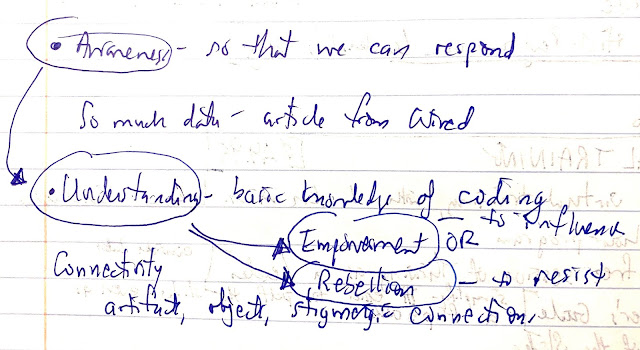 • Awareness - so that we can respond
So much data - article from Wired
• Understanding - basic knowledge of coding
Empowerment - to influence
OR
Rebellion - to resist
Connectivity
artifact, object, stigmergic connection.